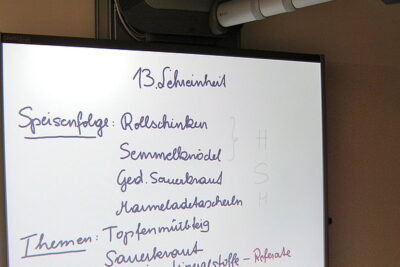 13. Lehreinheit
Speisenfolge: Rollschinken
Semmelknödel } H
Ged. Sauerkraut S
Marmeladetascherln H
Themen: Topfenmürbteig
Sauerkraut
- Referate